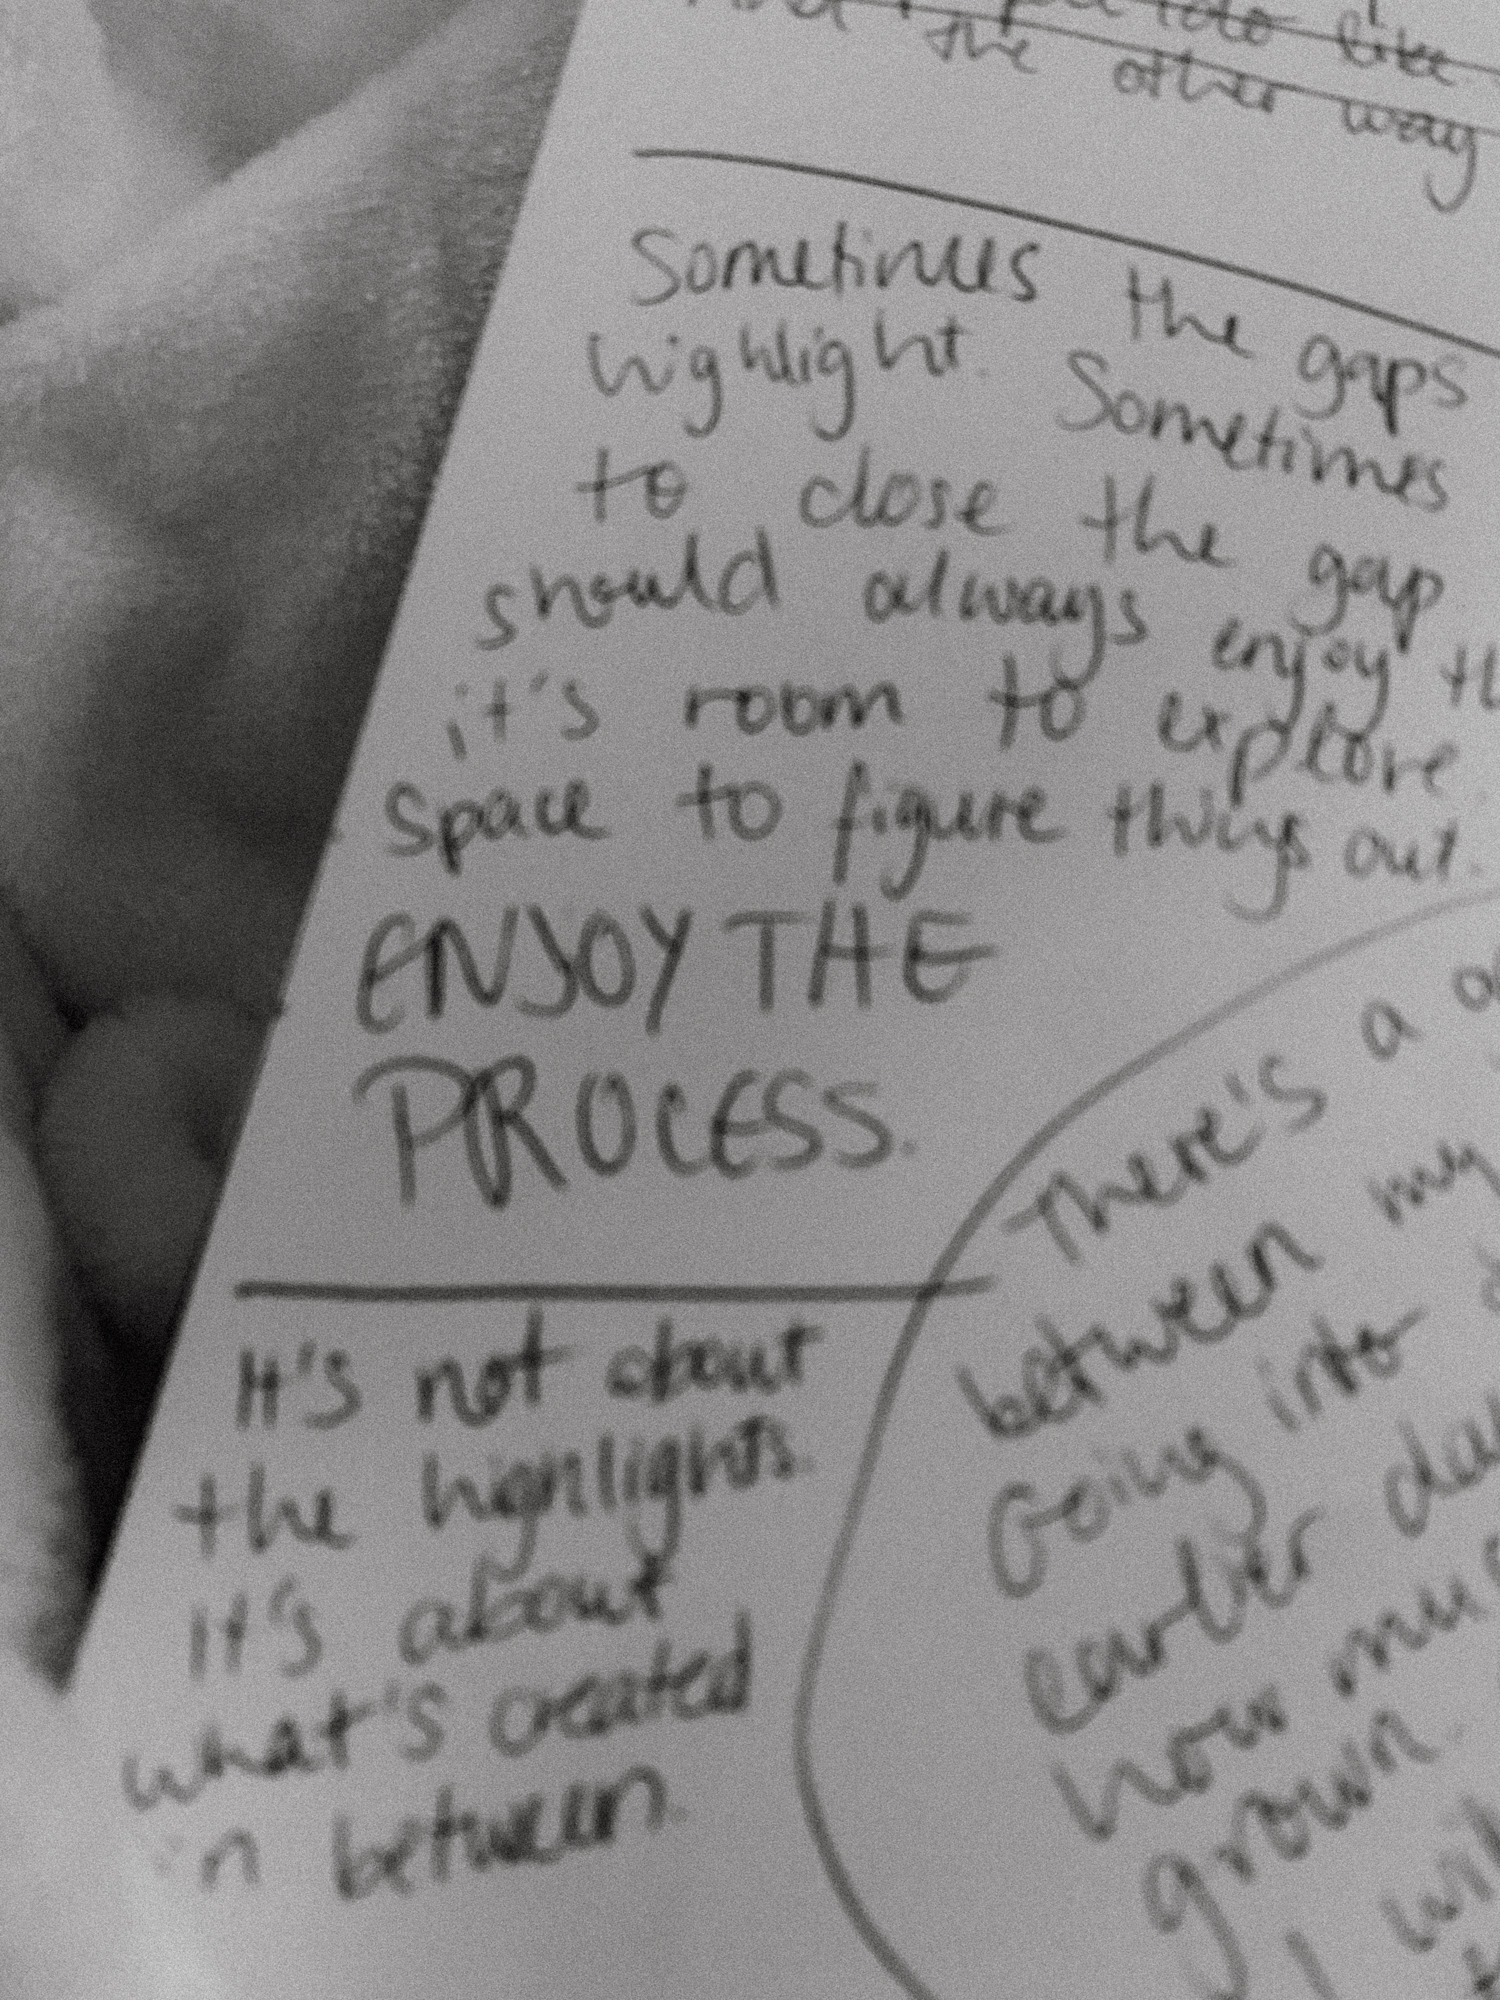 like
the other way
Sometimes the gaps
highlight. Sometimes
to close the gap
should always enjoy
it's room to explore.
Space to figure things out.
ENJOY THE
PROCESS.
It's not about
the highlights.
It's about
what's created
in between.
There's a
between my
Going into
earlier
how
grown.
I